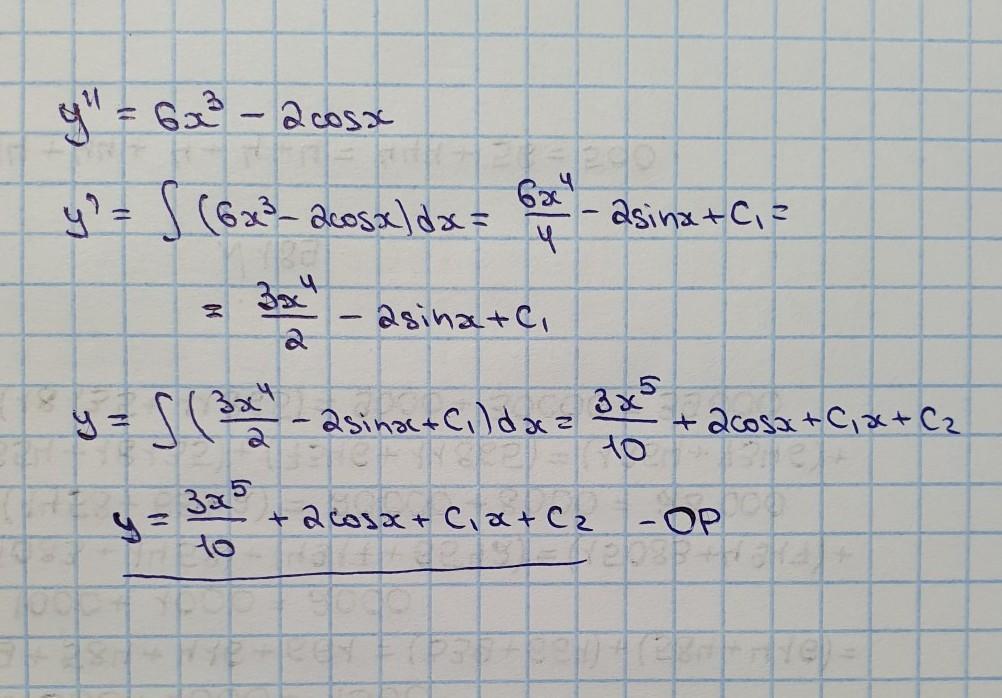 y'' = 6x³ - 2cosx
y' = ∫(6x³ - 2cosx)dx = 6x⁴/4 - 2sinx + C₁ =
= 3x⁴/2 - 2sinx + C₁
y = ∫(3x⁴/2 - 2sinx + C₁)dx = 3x⁵/10 + 2cosx + C₁x + C₂
y = 3x⁵/10 + 2cosx + C₁x + C₂ - OP